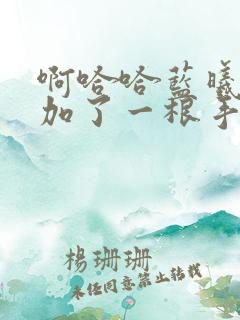 啊哈哈蓝曦
加了一根手
楊珊珊
未经同意禁止转载